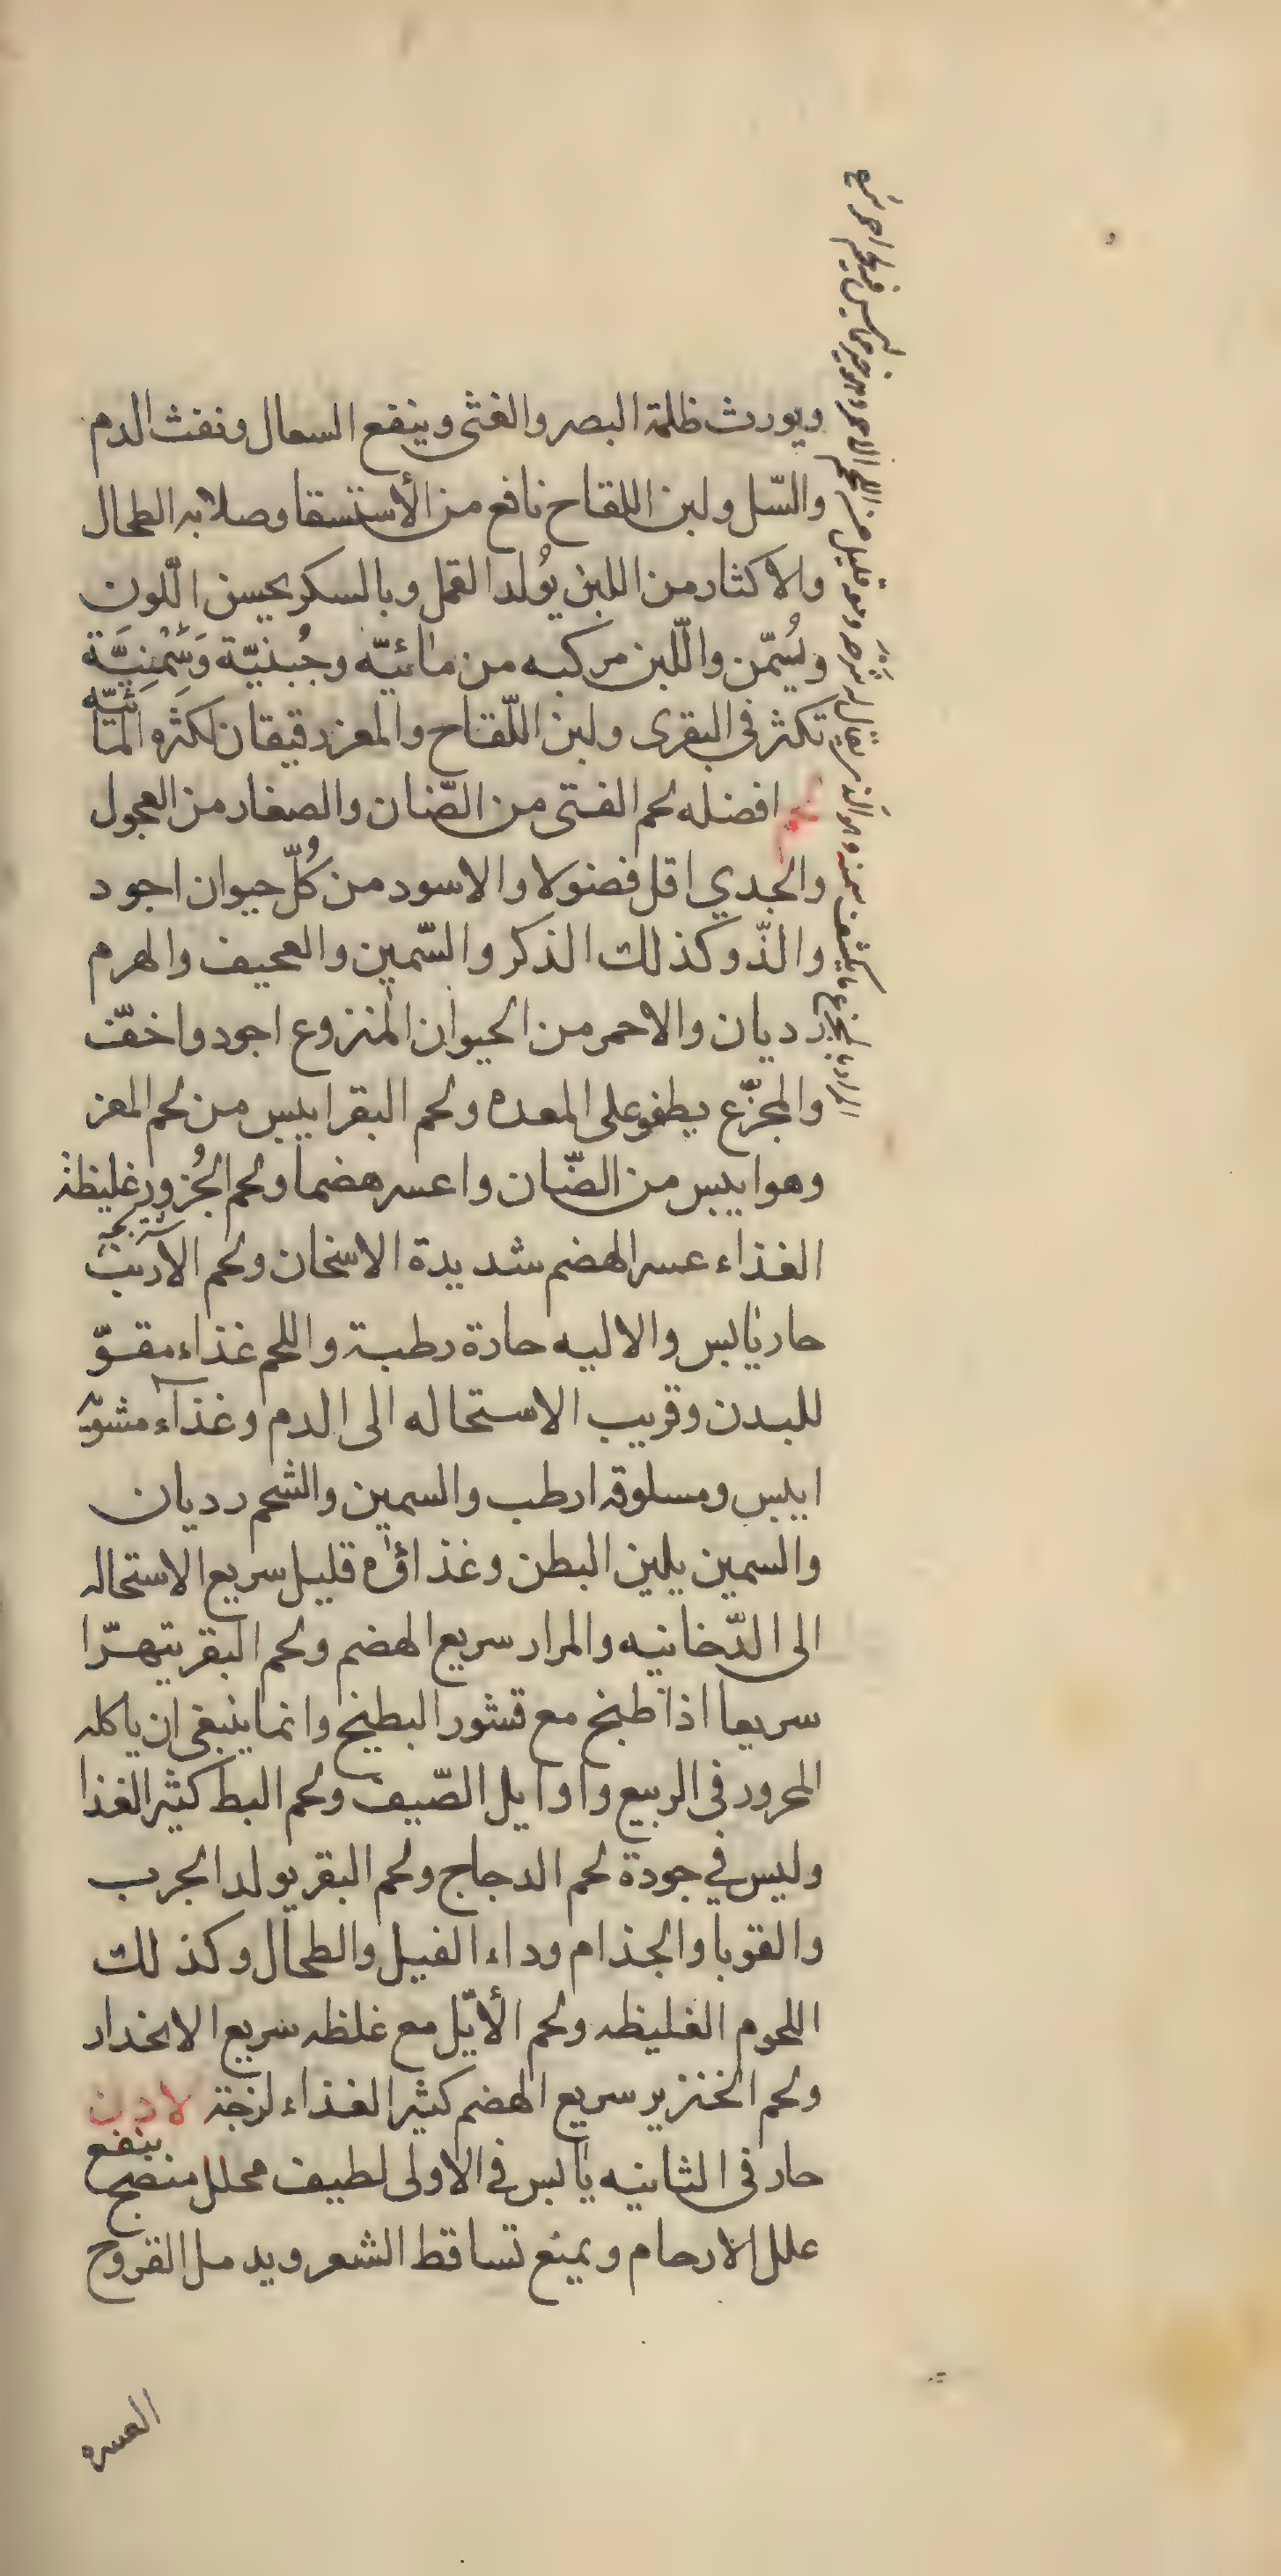 ويورث ظلمة البصر والغثى وينفع السعال ونفث الدم
والسّل ولبن اللقاح نافع من الأستسقا وصلابه الطحال
والاكثار من اللبن يُولد القمل وبالسكر يحسن اللّون
ويُسمّن واللّبن مركبه من مائيّه وجُبنيّة وَسَمْنِيَّة
تكثر في البقرى ولبن اللّقاح والمعز رقيقان لكثره المائيّه
لحم افضله لحم الفتى من الضّان والصغار من العجول
والجدي اقل فضولا والاسود من كُلّ حيوان اجود
والذّ وكذلك الذكر والسّمين والعجيف والهرم
رديان والاحمر من الحيوان المنزوع اجود واخفّ
والمجزّع يطفو على المعده ولحم البقر ايبس من لحم المعز
وهو ايبس من الضّان واعسر هضما ولحم الجُزور غليظة
الغذاء عسر الهضم شديدة الاسخان ولحم الارنب
حار يابس والاليه حارة رطبة واللحم غذاء مقوّ
للبدن وقريب الاستحاله الى الدم وغذاء مشويّه
ايبس ومسلوقه ارطب والسمين والشحم رديان
والسمين يلين البطن وغذاؤه قليل سريع الاستحاله
الى الدّخانيه والمرار سريع الهضم ولحم البقر يتهرّا
سريعا اذا طبخ مع قشور البطيخ وانما ينبغى ان ياكله
المحرور فى الربيع واوايل الصّيف ولحم البط كثير الغذا
وليس في جودة لحم الدجاج ولحم البقر يولد الجرب
والقوبا والجذام وداء الفيل والطحال وكذلك
اللحوم الغليظه ولحم الأيّل مع غلظه سريع الانحدار
ولحم الخنزير سريع الهضم كثير الغذاء لزجة لادن
حار فى الثانيه يابس في الاولى لطيف محلل منضج ينفع
علل الارحام ويمنع تساقط الشعر ويدمل القروح
العسره